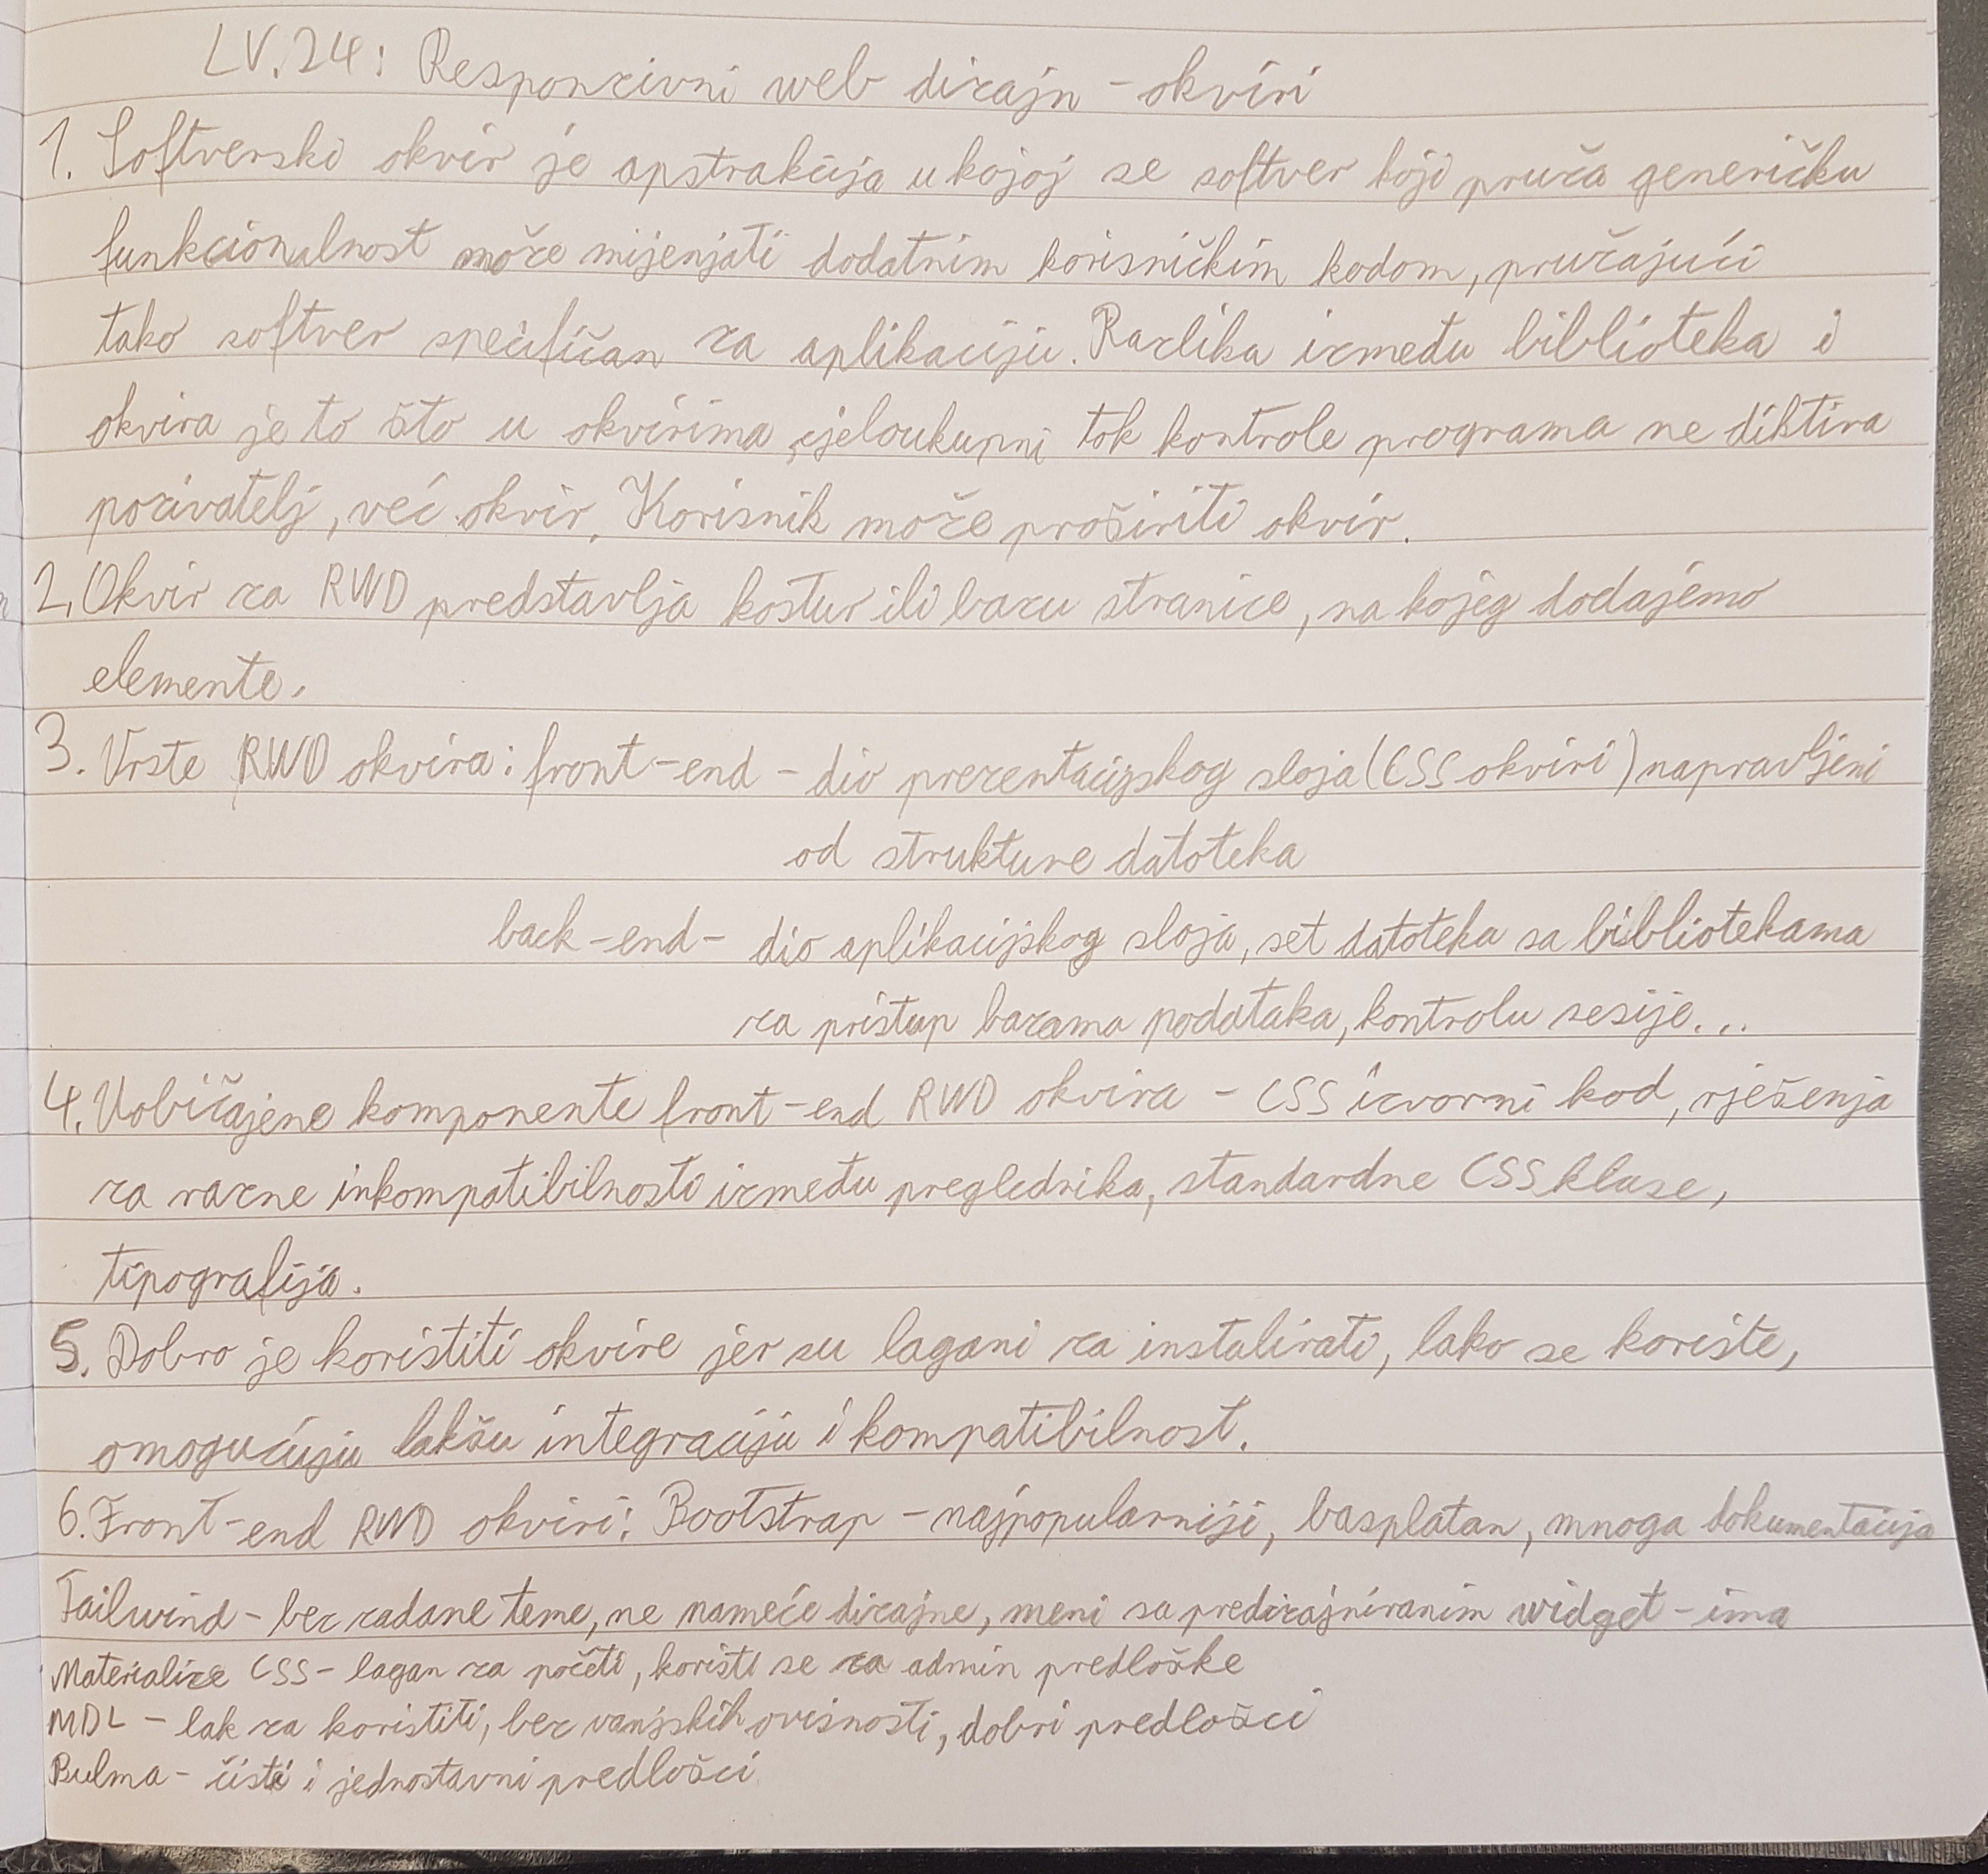 LV.24: Responzivni web dizajn - okviri
1. Softverski okvir je apstrakcija u kojoj se softver koji pruža generičku
funkcionalnost može mijenjati dodatnim korisničkim kodom, pružajući
tako softver specifičan za aplikaciju. Razlika između biblioteka i
okvira je to što u okvirima cjeloukupni tok kontrole programa ne diktira
pozivatelj, već okvir. Korisnik može proširiti okvir.
2. Okvir za RWD predstavlja kostur ili bazu stranice, na kojeg dodajemo
elemente.
3. Vrste RWD okvira: front-end - dio prezentacijskog sloja (CSS okviri) napravljeni
od strukture datoteka
back-end - dio aplikacijskog sloja, set datoteka sa bibliotekama
za pristup bazama podataka, kontrolu sesije...
4. Uobičajene komponente front-end RWD okvira - CSS izvorni kod, rješenja
za razne inkompatibilnosti između preglednika, standardne CSS klase,
tipografija.
5. Dobro je koristiti okvire jer su lagani za instalirati, lako se koriste,
omogućuju lakšu integraciju i kompatibilnost.
6. Front-end RWD okviri: Bootstrap - najpopularniji, basplatan, mnoga dokumentacija
Tailwind - bez zadane teme, ne nameće dizajne, meni sa predizajniranim widget-ima
Materialize CSS - lagan za početi, koristi se za admin predloške
MDL - lak za koristiti, bez vanjskih ovisnosti, dobri predlošci
Bulma - čisti i jednostavni predlošci